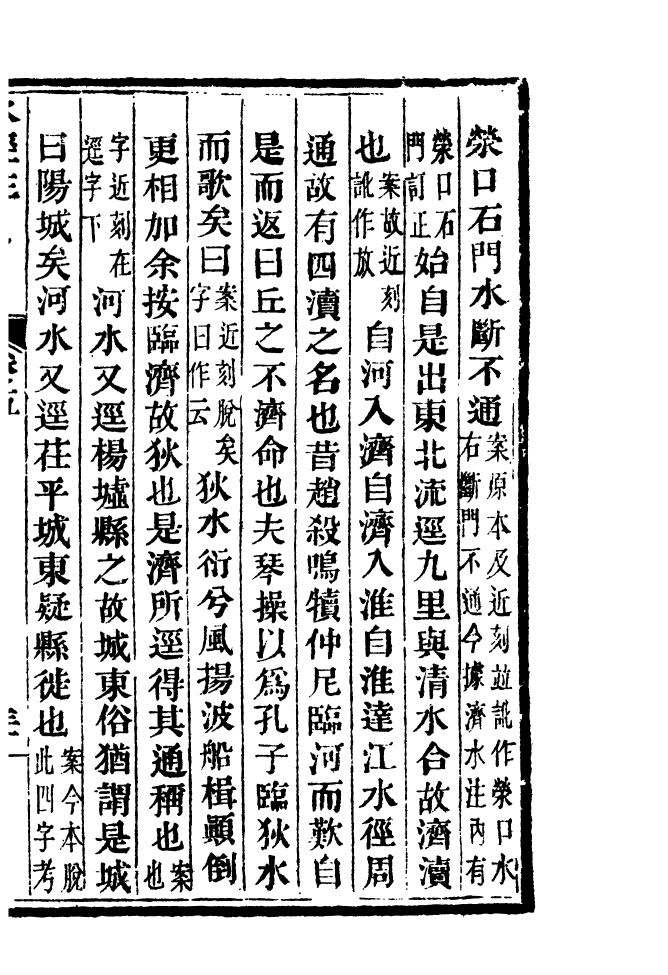 滎口石門水斷不通案原本及近刻並訛作滎口水右斷門不通今據濟水注內有
滎口石門訂正始自是出東北流逕九里與清水合故濟瀆
也案故近刻訛作放自河入濟自濟入淮自淮達江水徑周
通故有四瀆之名也昔趙殺鳴犢仲尼臨河而歎自
是而返曰丘之不濟命也夫琴操以爲孔子臨狄水
而歌矣曰案近刻脫矣字曰作云狄水衍兮風揚波船楫顚倒
更相加余按臨濟故狄也是濟所逕得其通稱也案也
字近刻在逕字下河水又逕楊墟縣之故城東俗猶謂是城
曰陽城矣河水又逕茌平城東疑縣徙也案今本脫此四字考